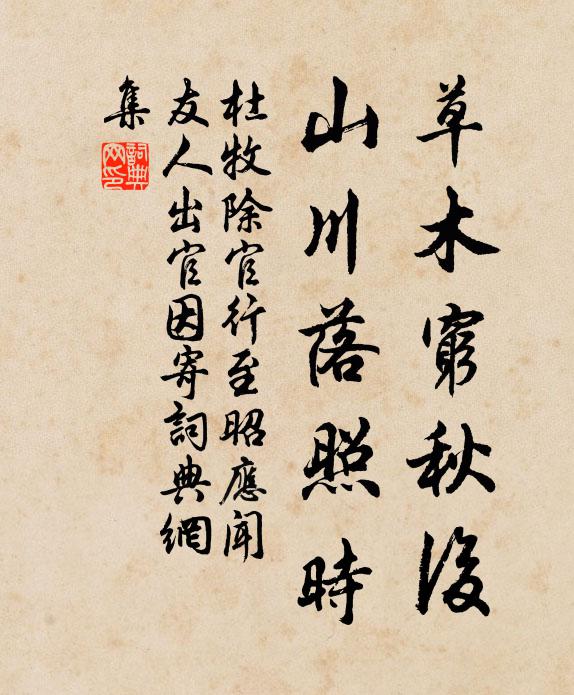 草木窮秋後
山川落照時
杜牧除官行至昭應聞
友人出官因寄詞典網
集
詞典網印